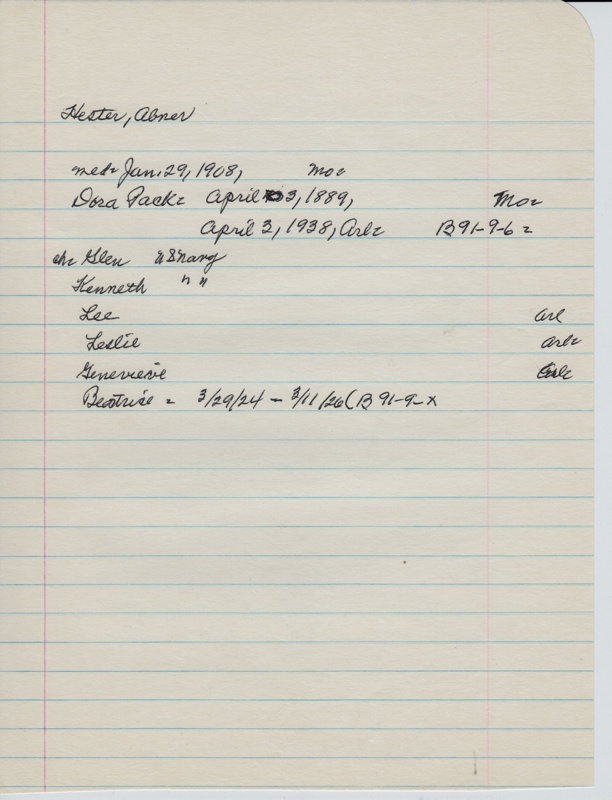 Hester, Abner
med- Jan. 29, 1908, Mo-
Dora Pack- April 3, 1889, Mo-
April 3, 1938, Arl- B 91-9-6 -
ch- Glen
Kenneth " "
Lee Arl
Leslie Arl-
Genevieve Arl-
Beatrice - 3/29/24 - 3/11/26 (B 91-9-x